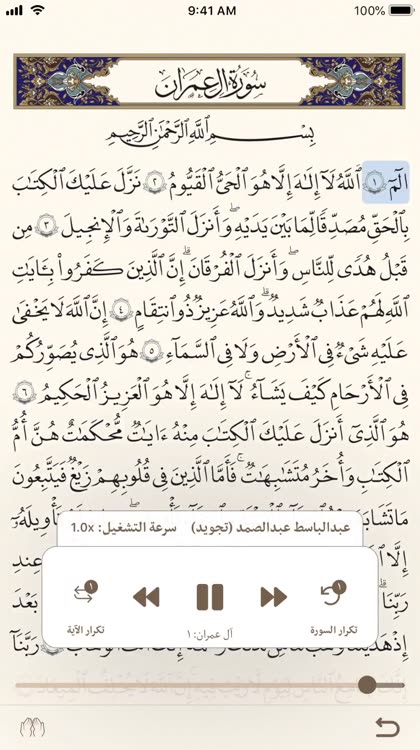 9:41 AM 100%
سورة آل عمران
بِسْمِ ٱللَّهِ ٱلرَّحْمَٰنِ ٱلرَّحِيمِ
الٓمٓ ١ ٱللَّهُ لَآ إِلَٰهَ إِلَّا هُوَ ٱلْحَىُّ ٱلْقَيُّومُ ٢ نَزَّلَ عَلَيْكَ ٱلْكِتَٰبَ
بِٱلْحَقِّ مُصَدِّقًا لِّمَا بَيْنَ يَدَيْهِ وَأَنزَلَ ٱلتَّوْرَىٰةَ وَٱلْإِنجِيلَ ٣ مِن
قَبْلُ هُدًى لِّلنَّاسِ وَأَنزَلَ ٱلْفُرْقَانَ ۗ إِنَّ ٱلَّذِينَ كَفَرُوا۟ بِـَٔايَٰتِ
ٱللَّهِ لَهُمْ عَذَابٌ شَدِيدٌ ۗ وَٱللَّهُ عَزِيزٌ ذُو ٱنتِقَامٍ ٤ إِنَّ ٱللَّهَ لَا يَخْفَىٰ
عَلَيْهِ شَىْءٌ فِى ٱلْأَرْضِ وَلَا فِى ٱلسَّمَآءِ ٥ هُوَ ٱلَّذِى يُصَوِّرُكُمْ
فِى ٱلْأَرْحَامِ كَيْفَ يَشَآءُ ۚ لَآ إِلَٰهَ إِلَّا هُوَ ٱلْعَزِيزُ ٱلْحَكِيمُ ٦
هُوَ ٱلَّذِىٓ أَنزَلَ عَلَيْكَ ٱلْكِتَٰبَ مِنْهُ ءَايَٰتٌ مُّحْكَمَٰتٌ هُنَّ أُمُّ
ٱلْكِتَٰبِ وَأُخَرُ مُتَشَٰبِهَٰتٌ ۖ فَأَمَّا ٱلَّذِينَ فِى قُلُوبِهِمْ زَيْغٌ فَيَتَّبِعُونَ
مَا تَشَٰبَهَ
عبدالباسط عبدالصمد (تجويد) سرعة التشغيل: 1.0x
إِلَّا عِندِ
رَبِّنَا
بَعْدَ
١ ١
تكرار السورة آل عمران: ١ تكرار الآية
رَبَّنَآ